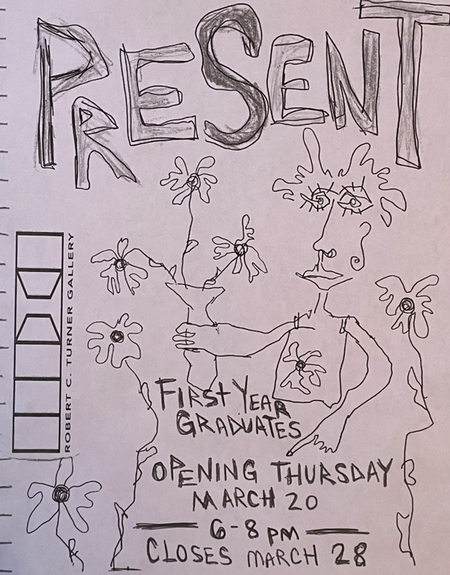 PRESENT
ROBERT C. TURNER GALLERY
FIRST YEAR
GRADUATES
OPENING THURSDAY
MARCH 20
6-8 PM
CLOSES MARCH 28